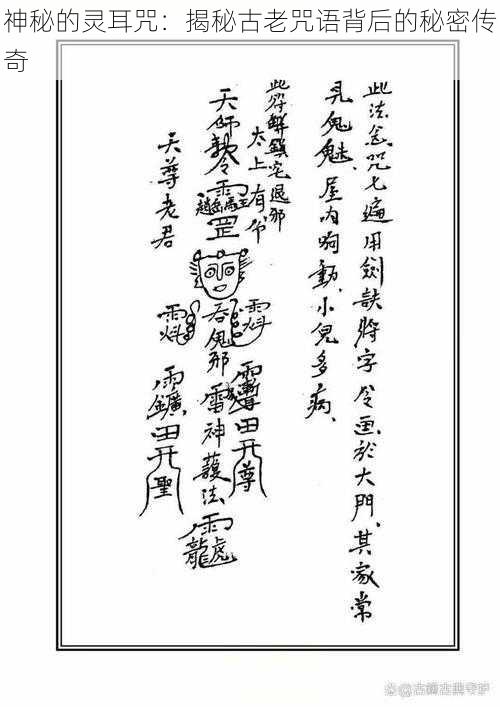 神秘的灵耳咒：揭秘古老咒语背后的秘密传
奇
此法念咒七遍用劍訣將字令画於大門、其家常
見鬼魅、屋内响動、小兒多病、
此符解鎮宅退邪
太上有命
天師敕令
罡
吞鬼邪
雷神護法
天尊老君
田开尊
田开聖
龍
虎